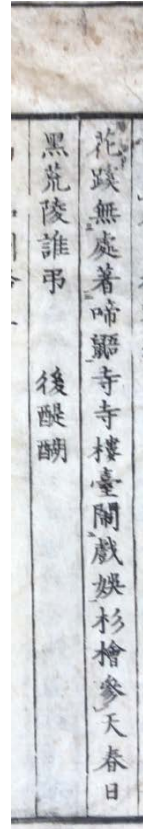 花蹊無處著啼鼯寺寺樓臺鬧戲娛杉檜參天春日
黑荒陵誰弔 後醍醐